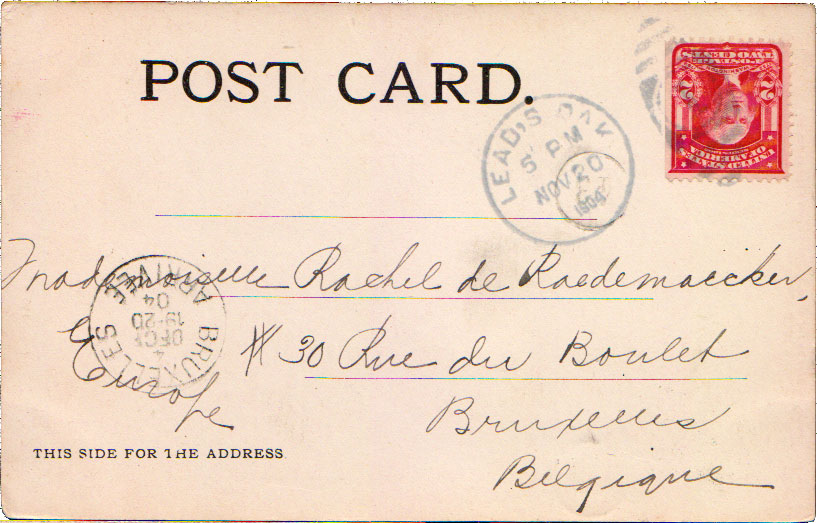 POST CARD.
LEAD'S, DAK
5 PM
NOV 20
1904
UNITED STATES
OF AMERICA
POSTAGE
TWO CENTS
2 2
Mademoiselle Rachel de Raedemaecker,
# 30 Rue du Boulet
Europe
Bruxelles
Belgique
BRUXELLES
4
DECE
19-20
04
ARRIVEE
THIS SIDE FOR THE ADDRESS